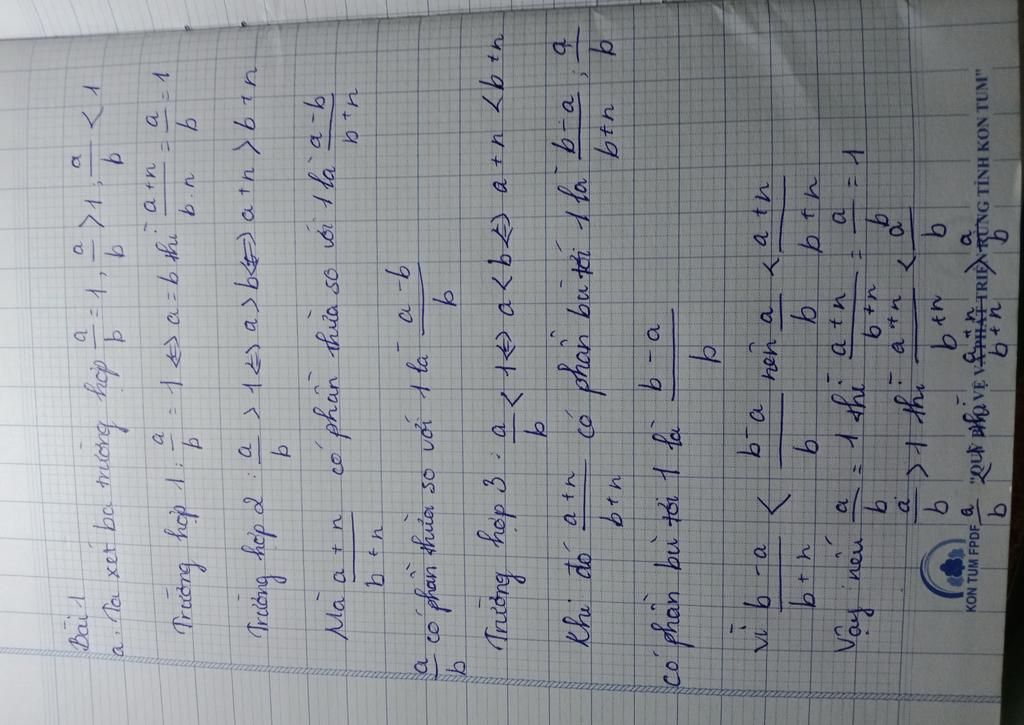 Bài 1
a. Ta xét ba trường hợp a/b = 1, a/b > 1, a/b < 1
Trường hợp 1: a/b = 1 <=> a = b thì a+n/b.n = a/b = 1
Trường hợp 2: a/b > 1 <=> a > b <=> a + n > b + n
Mà a+n/b+n có phần thừa so với 1 là a-b/b+n
a/b có phần thừa so với 1 là a-b/b
Trường hợp 3: a/b < 1 <=> a < b <=> a + n < b + n
Khi đó a+n/b+n có phần bù tới 1 là b-a/b+n, a/b
có phần bù tới 1 là b-a/b
vì b-a/b+n < b-a/b nên a/b < a+n/b+n
Vậy nếu a/b = 1 thì a+n/b+n = a/b = 1
a/b > 1 thì a+n/b+n < a/b
a/b a+n/b+n > a/b
KON TUM FPDF "QUỸ BẢO VỆ VÀ PHÁT TRIỂN RỪNG TỈNH KON TUM"